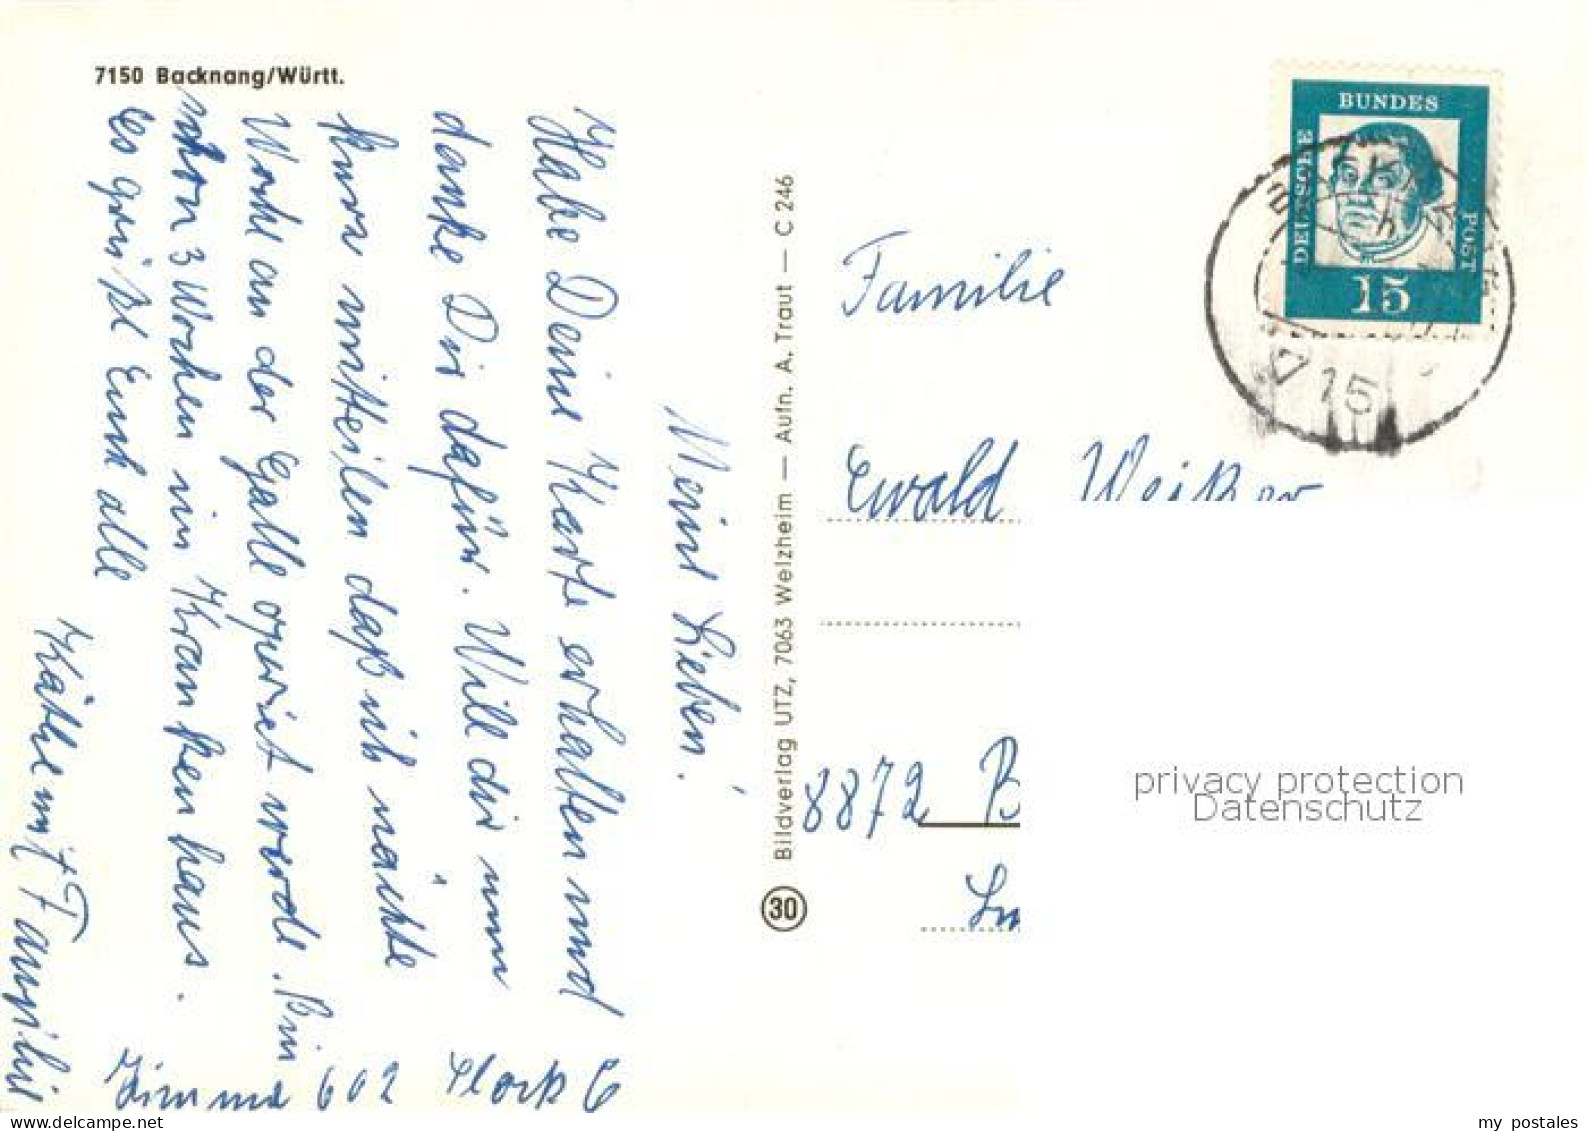 7150 Backnang/Württ.
Meine Lieben!
Habe Deine Karte erhalten und
danke Dir dafür. Will dir nun
kurz mitteilen daß ich nächste
Woche an der Galle operiert werde. Bin
schon 3 Wochen im Krankenhaus.
Es grüßt Euch alle
Käthe mit Familie
Zimmer 602 Stock 6
Bildverlag UTZ, 7063 Welzheim — Aufn. A. Traut — C 246
30
DEUTSCHE
BUNDES
POST
15
BACKNANG
15
Familie
Ewald
8872 B
privacy protection
Datenschutz
my postales